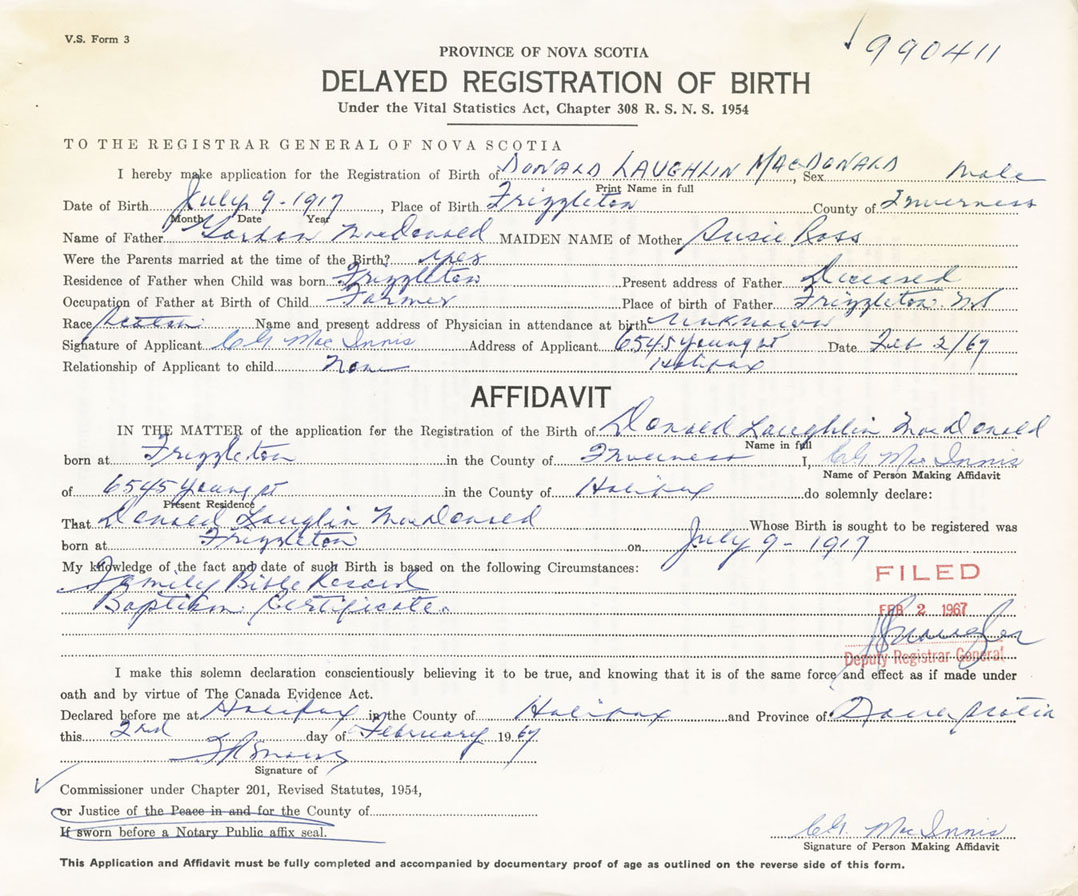 V.S. Form 3
990411
PROVINCE OF NOVA SCOTIA
DELAYED REGISTRATION OF BIRTH
Under the Vital Statistics Act, Chapter 308 R. S. N. S. 1954
TO THE REGISTRAR GENERAL OF NOVA SCOTIA
I hereby make application for the Registration of Birth of DONALD LAUGHLIN MACDONALD, Sex male
Print Name in full
Date of Birth July 9 - 1917, Place of Birth Frizzleton County of Inverness
Month Date Year
Name of Father Gordon MacDonald MAIDEN NAME of Mother Susie Ross
Were the Parents married at the time of the Birth? yes
Residence of Father when Child was born Frizzleton Present address of Father Deceased
Occupation of Father at Birth of Child Farmer Place of birth of Father Frizzleton. NS
Race Scotch Name and present address of Physician in attendance at birth Unknown
Signature of Applicant CG Mac Innis Address of Applicant 6545 Young st Date Feb 2/67
Relationship of Applicant to child None Halifax
AFFIDAVIT
IN THE MATTER of the application for the Registration of the Birth of Donald Laughlin MacDonald
Name in full
born at Frizzleton in the County of Inverness I, CG Mac Innis
Name of Person Making Affidavit
of 6545 Young st in the County of Halifax do solemnly declare:
Present Residence
That Donald Lauglin MacDonald Whose Birth is sought to be registered was
born at Frizzleton on July 9 - 1917
My knowledge of the fact and date of such Birth is based on the following Circumstances:
Family Bible Record
Baptism Certificate.
FILED
FEB 2 1967
Deputy Registrar General
I make this solemn declaration conscientiously believing it to be true, and knowing that it is of the same force and effect as if made under
oath and by virtue of The Canada Evidence Act.
Declared before me at Halifax in the County of Halifax and Province of Nova Scotia
this 2nd day of February 1967
Signature of
Commissioner under Chapter 201, Revised Statutes, 1954,
or Justice of the Peace in and for the County of
If sworn before a Notary Public affix seal.
CG. Mac Innis
Signature of Person Making Affidavit
This Application and Affidavit must be fully completed and accompanied by documentary proof of age as outlined on the reverse side of this form.